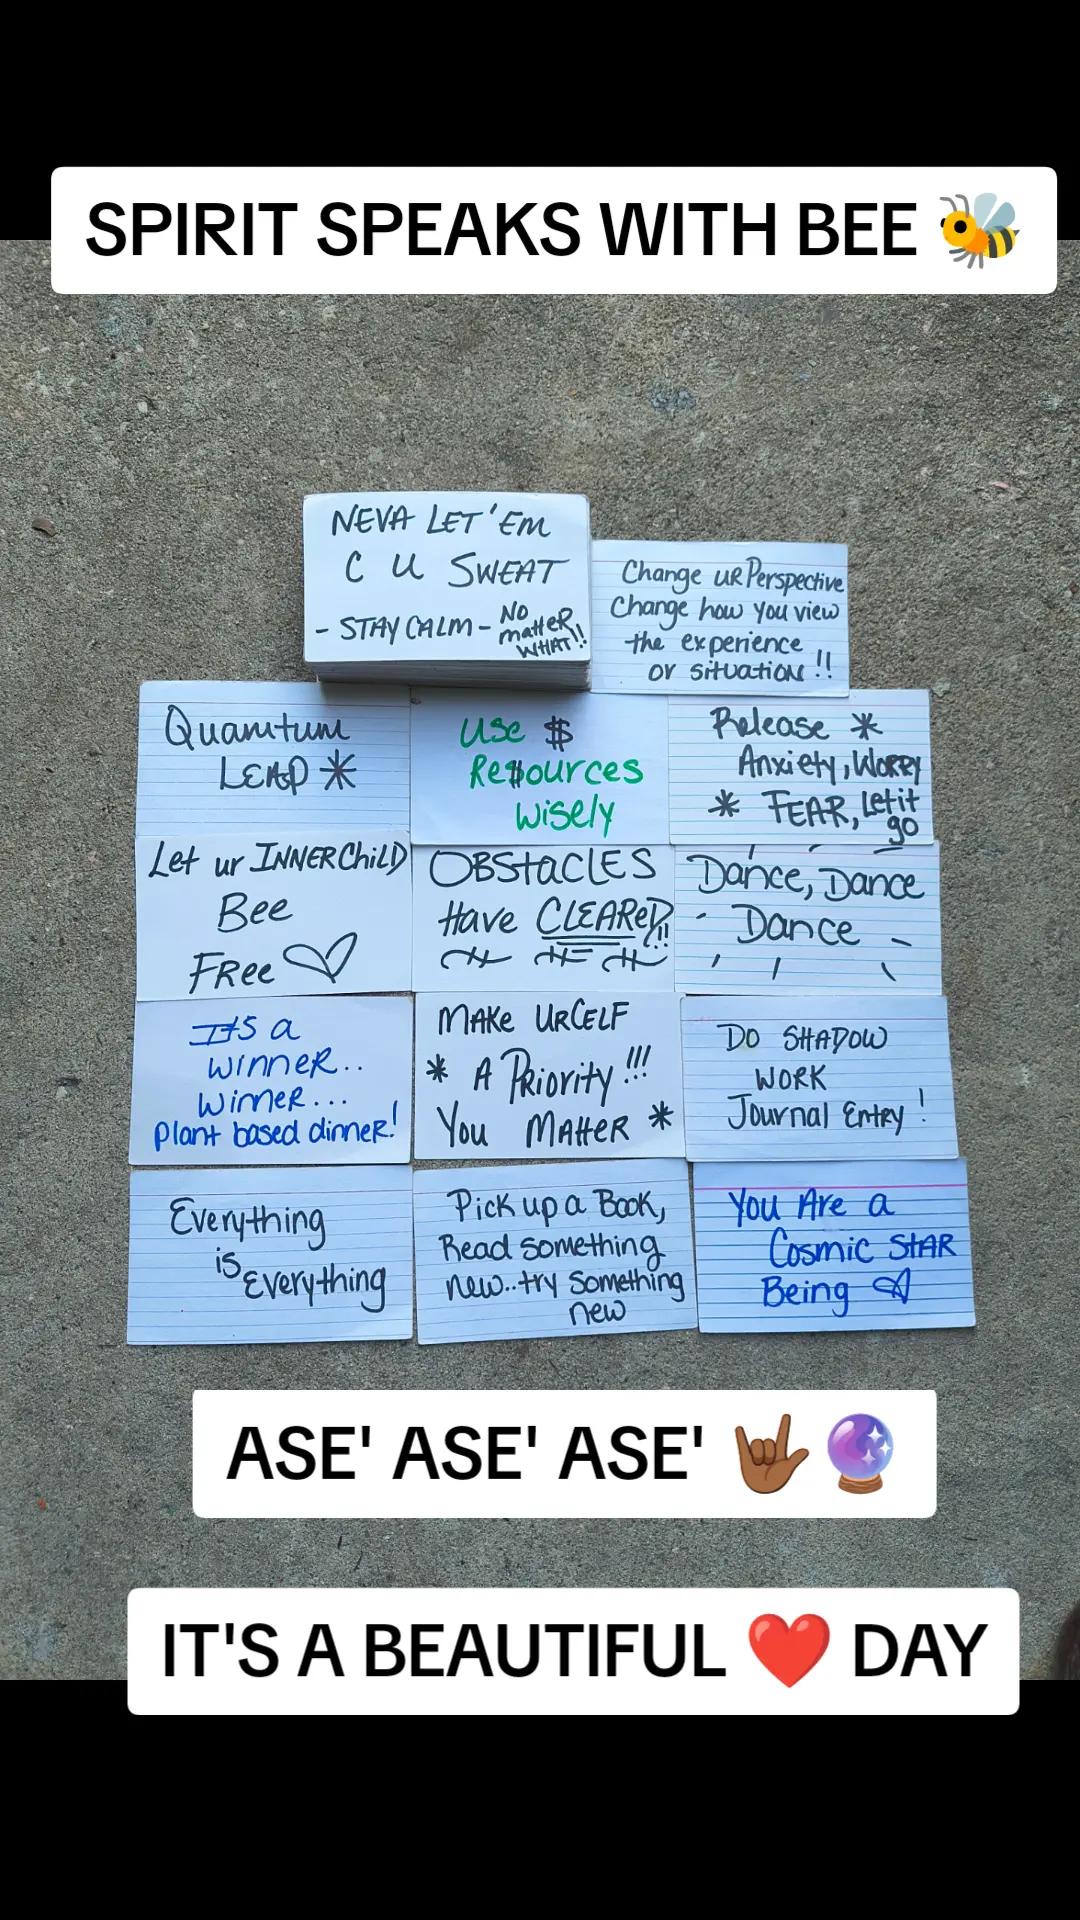 SPIRIT SPEAKS WITH BEE 🐝
NEVA LET 'EM
C U SWEAT
- STAY CALM - NO
matteR
WHAT!!
Change uR Perspective
Change how you view
the experience
or situation!!
Quantum
LEAP *
Use $
Re$ources
Wisely
Release *
Anxiety, WORRY
* FEAR, Let it
go
Let ur INNER ChilD
Bee
FRee ♡
OBStACLES
Have CLEAReD!!
Dance, Dance
Dance
It's a
winneR..
Winner...
plant based dinneR!
MAKe URCELF
* A PRiority!!!
You MAtteR *
DO SHADOW
WORK
Journal Entry!
Everything
is
Everything
Pick up a Book,
Read something
new..try something
new
You Are a
Cosmic StAR
Being ♡
ASE' ASE' ASE' 🤟🏾🔮
IT'S A BEAUTIFUL ❤️ DAY